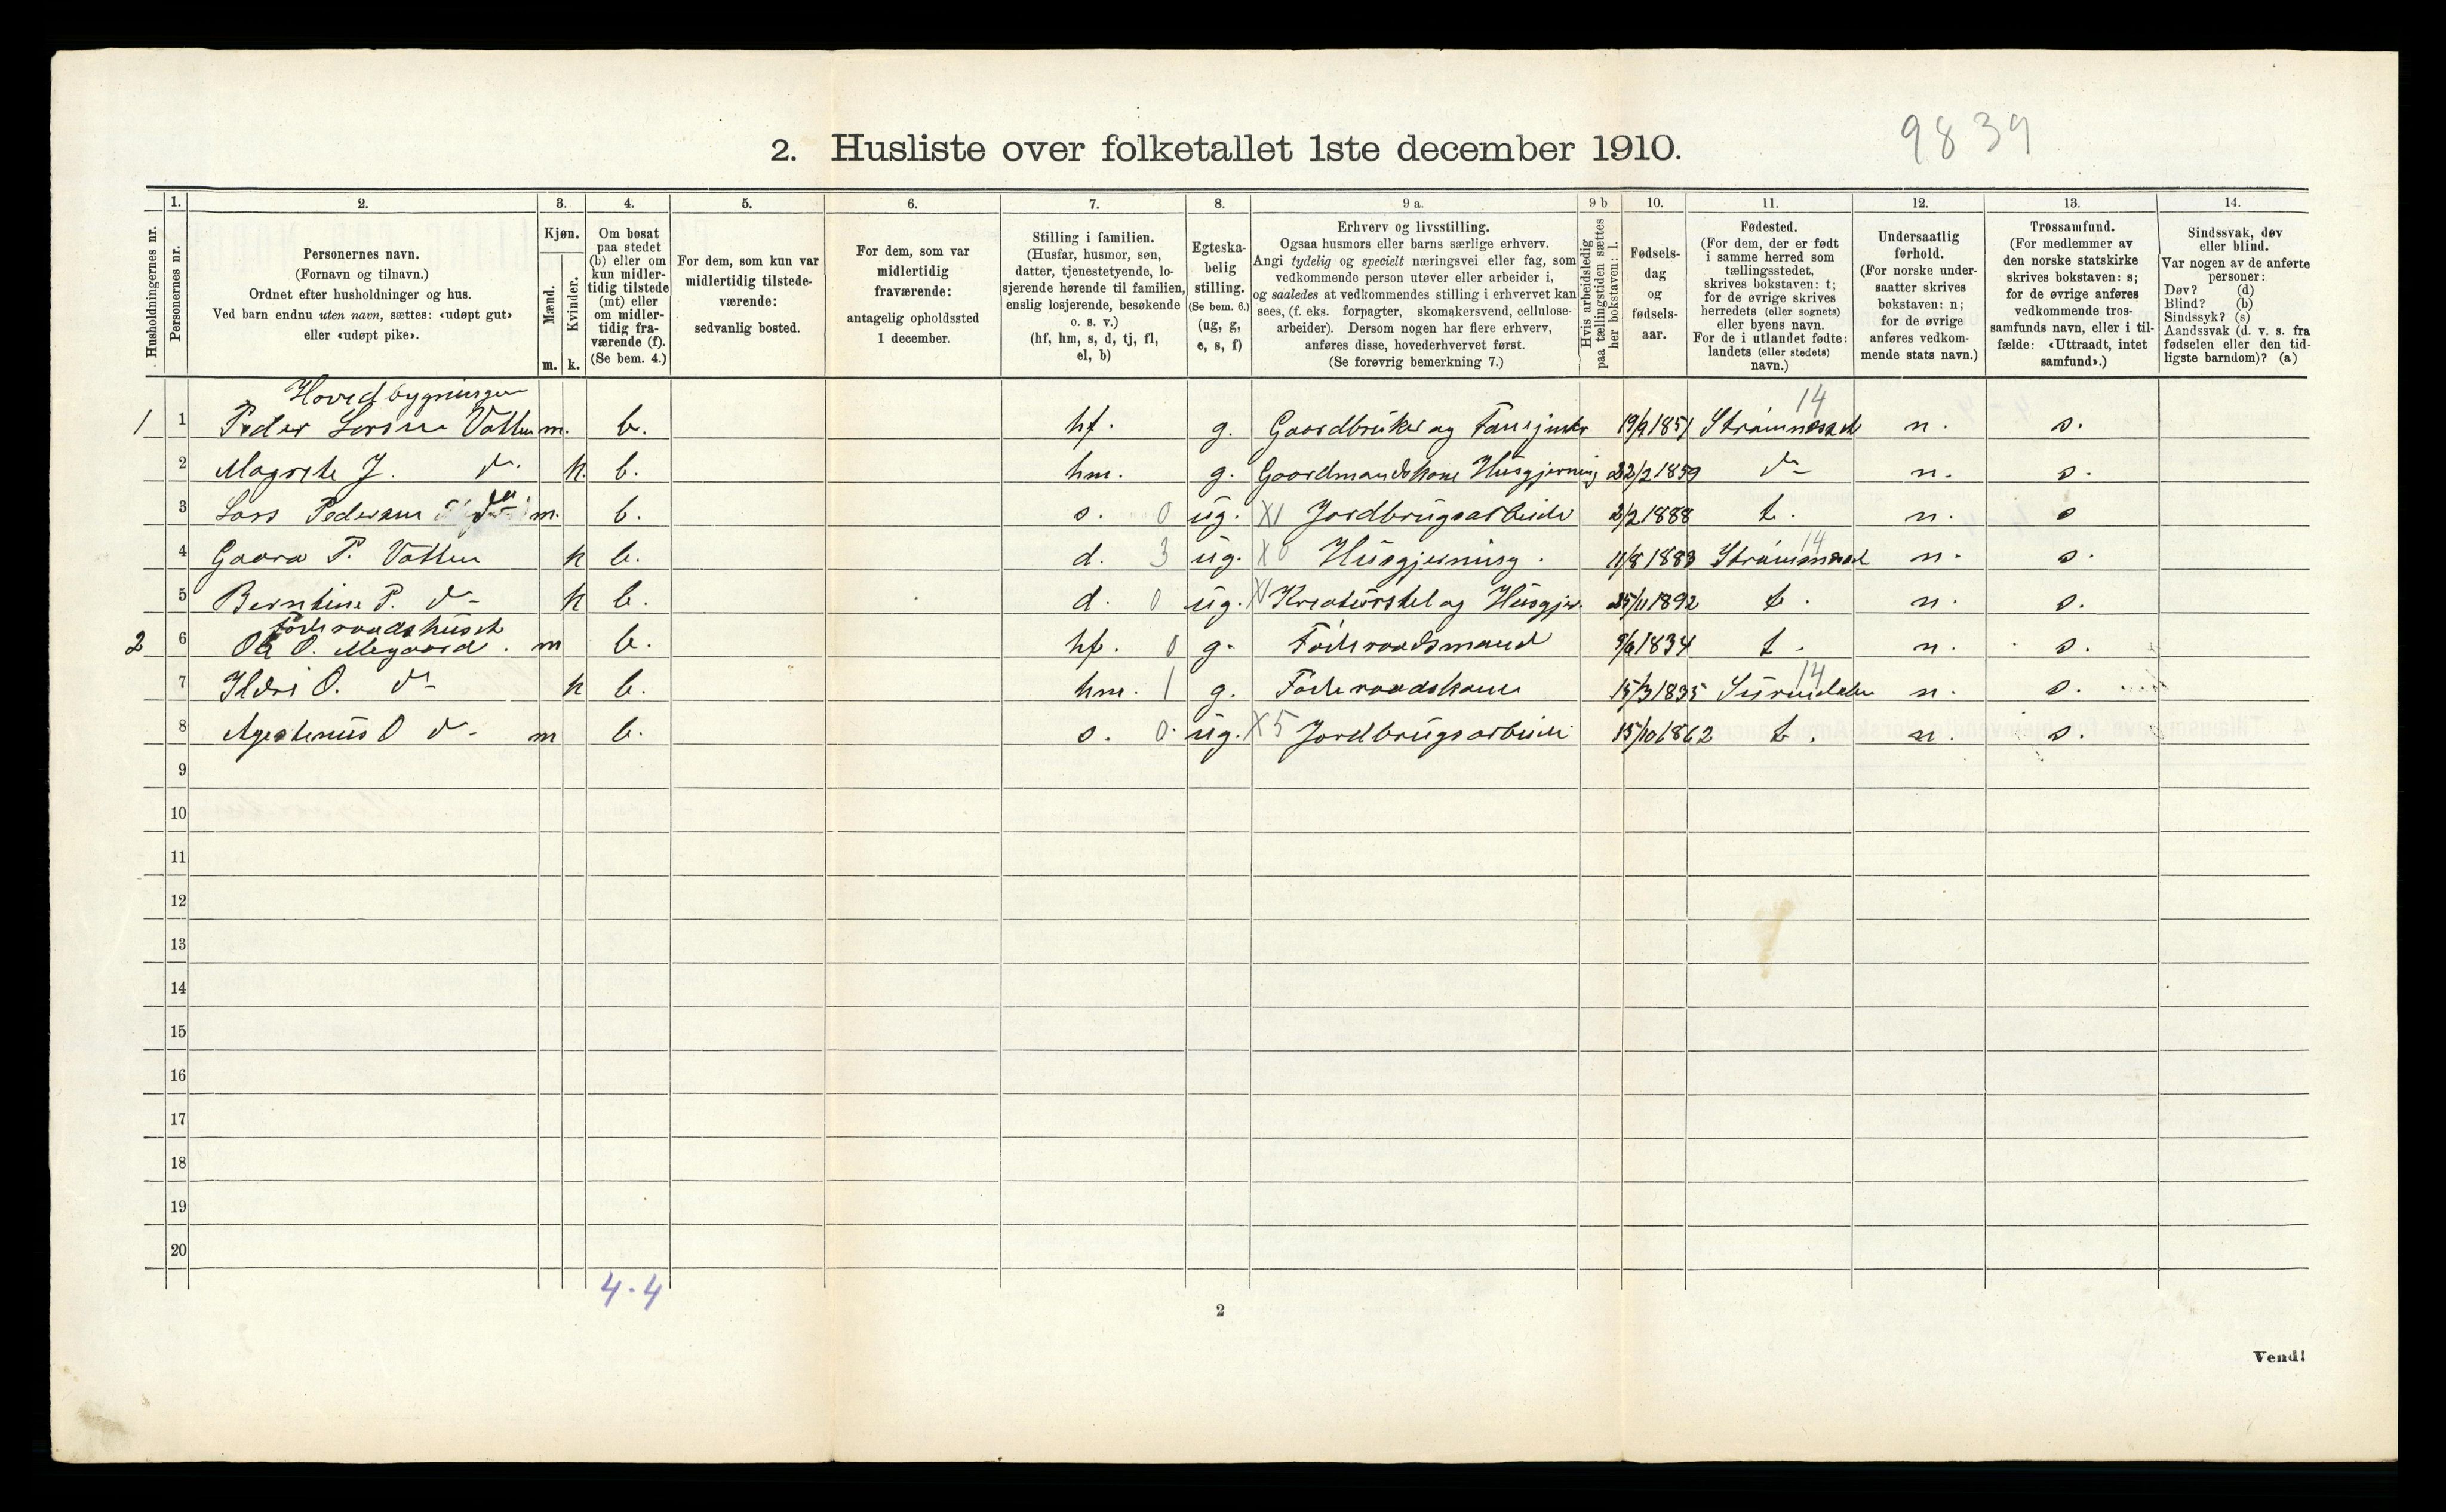 9839
2. Husliste over folketallet 1ste december 1910.
1. 2. 3. 4. 5. 6. 7. 8. 9 a. 9 b 10. 11. 12. 13. 14.
Husholdningernes nr.
Personernes nr.
Personernes navn.
(Fornavn og tilnavn.)
Ordnet efter husholdninger og hus.
Ved barn endnu uten navn, sættes: «udøpt gut»
eller «udøpt pike».
Kjøn.
Mænd.
Kvinder.
m. k.
Om bosat
paa stedet
(b) eller om
kun midler-
tidig tilstede
(mt) eller
om midler-
tidig fra-
værende (f).
(Se bem. 4.)
For dem, som kun var
midlertidig tilstede-
værende:
sedvanlig bosted.
For dem, som var
midlertidig
fraværende:
antagelig opholdssted
1 december.
Stilling i familien.
(Husfar, husmor, søn,
datter, tjenestetyende, lo-
sjerende hørende til familien,
enslig losjerende, besøkende
o. s. v.)
(hf, hm, s, d, tj, fl,
el, b)
Egteska-
belig
stilling.
(Se bem. 6.)
(ug, g,
e, s, f)
Erhverv og livsstilling.
Ogsaa husmors eller barns særlige erhverv.
Angi tydelig og specielt næringsvei eller fag, som
vedkommende person utøver eller arbeider i,
og saaledes at vedkommendes stilling i erhvervet kan
sees, (f. eks. forpagter, skomakersvend, cellulose-
arbeider). Dersom nogen har flere erhverv,
anføres disse, hovederhvervet først.
(Se forøvrig bemerkning 7.)
Hvis arbeidsledig
paa tællingstiden sættes
her bokstaven: l.
Fødsels-
dag
og
fødsels-
aar.
Fødested.
(For dem, der er født
i samme herred som
tællingsstedet,
skrives bokstaven: t;
for de øvrige skrives
herredets (eller sognets)
eller byens navn.
For de i utlandet fødte:
landets (eller stedets)
navn.)
Undersaatlig
forhold.
(For norske under-
saatter skrives
bokstaven: n;
for de øvrige
anføres vedkom-
mende stats navn.)
Trossamfund.
(For medlemmer av
den norske statskirke
skrives bokstaven: s;
for de øvrige anføres
vedkommende tros-
samfunds navn, eller i til-
fælde: «Uttraadt, intet
samfund».)
Sindssvak, døv
eller blind.
Var nogen av de anførte
personer:
Døv? (d)
Blind? (b)
Sindssyk? (s)
Aandssvak (d. v. s. fra
fødselen eller den tid-
ligste barndom)? (a)
Hovedbygningen 14
1 1 Peder Larsen Vatten m. b. hf. g. Gaardbruker og 19/9 1851 n. s.
2 Magrete J. do. k. b. hm. g. Gaardmandskone Husgjerning 22/2 1859 do n. s.
3 Lars Pedersen do m. b. s. 0 ug. X1 Jordbrugsarbeide 2/2 1888 t. n. s
14
4 P. Vatten k b. d. 3 ug. X0 Husgjerning. n. s.
5 Berntine P. do k b. d. 0 ug. Kreaturstel og Husgjer. 25/11 1892 t. n. s.
Føderaadshuset
2 6 O. Megaard. m b. hf. 0 g. Føderaadsmand 9/6 1834 t. n. s.
14
7 Ildri O. do k b. hm. 1 g. Føderaadskone 15/3 1835 Surendalen n. s.
8 O do m b. s. 0. ug. X5 Jordbrugsarbeide 15/10 1862 t. n. s.
9
10
11
12
13
14
15
16
17
18
19
20
4.4
2
Vend!